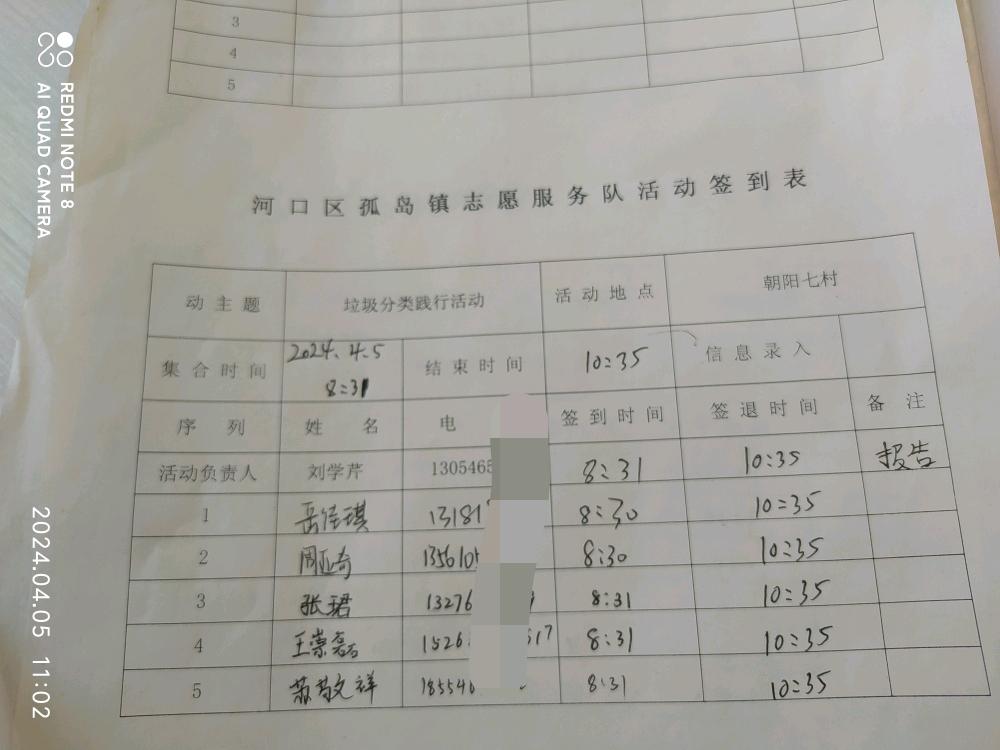 3
4
5
河口区孤岛镇志愿服务队活动签到表
动主题 垃圾分类践行活动 活动地点 朝阳七村
集合时间 2024.4.5 8:31 结束时间 10:35 信息录入
序列 姓名 电 签到时间 签退时间 备注
活动负责人 刘学芹 1305465 8:31 10:35 报告
1 岳佳琪 13181 8:30 10:35
2 周亚奇 135610 8:30 10:35
3 张珺 13276 8:31 10:35
4 王崇磊 1526 517 8:31 10:35
5 18554 8:31 10:35
REDMI NOTE 8
AI QUAD CAMERA
2024.04.05 11:02